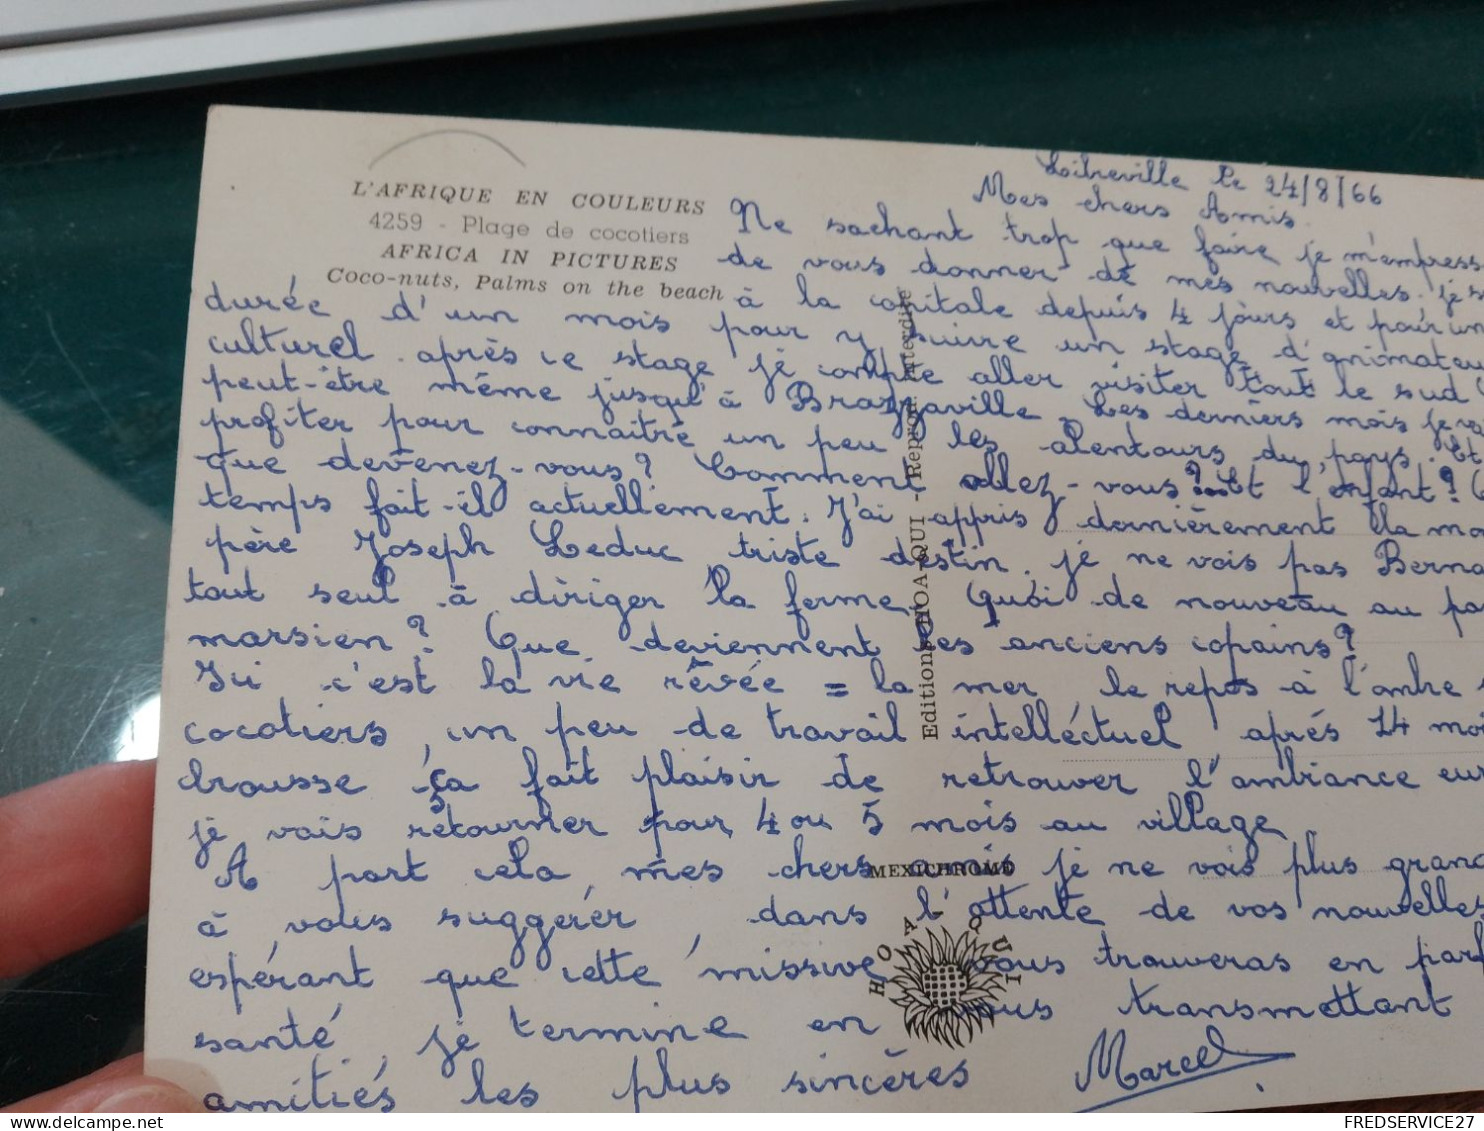 L'AFRIQUE EN COULEURS
4259 - Plage de cocotiers
AFRICA IN PICTURES
Coco-nuts, Palms on the beach
Libreville le 24/8/66
Mes chers Amis.
Ne sachant trop que faire je m'empress
de vous donner de mes nouvelles. je s
à la capitale depuis 4 jours et pour un
durée d'un mois pour y suivre un stage d'animateur
culturel. après ce stage je compte aller visiter tout le sud
peut-être même jusqu'à Brazzaville. Les derniers mois je va
profiter pour connaitre un peu les alentours du pays. Et
que devenez-vous? Comment allez-vous? Et l'enfant?
temps fait-il actuellement. J'ai appris dernièrement la mo
père Joseph Leduc triste destin. je ne vois pas Berna
tout seul à diriger la ferme. Quoi de nouveau au pa
marsien? Que deviennent les anciens copains?
Ici c'est la vie rêvée = la mer le repos à l'ombre
cocotiers, un peu de travail intelléctuel après 14 mo
brousse ça fait plaisir de retrouver l'ambiance eur
je vais retourner pour 4 ou 5 mois au village
A part cela, mes chers amis je ne vois plus grand
à vous suggérer, dans l'attente de vos nouvelles
espérant que cette missive vous trouveras en parf
santé, je termine en vous transmettant
amitiés les plus sincères
Marcel
Editions HOA-QUI - Reprod. interdite
MEXICHROME
HOA QUI
FREDSERVICE27